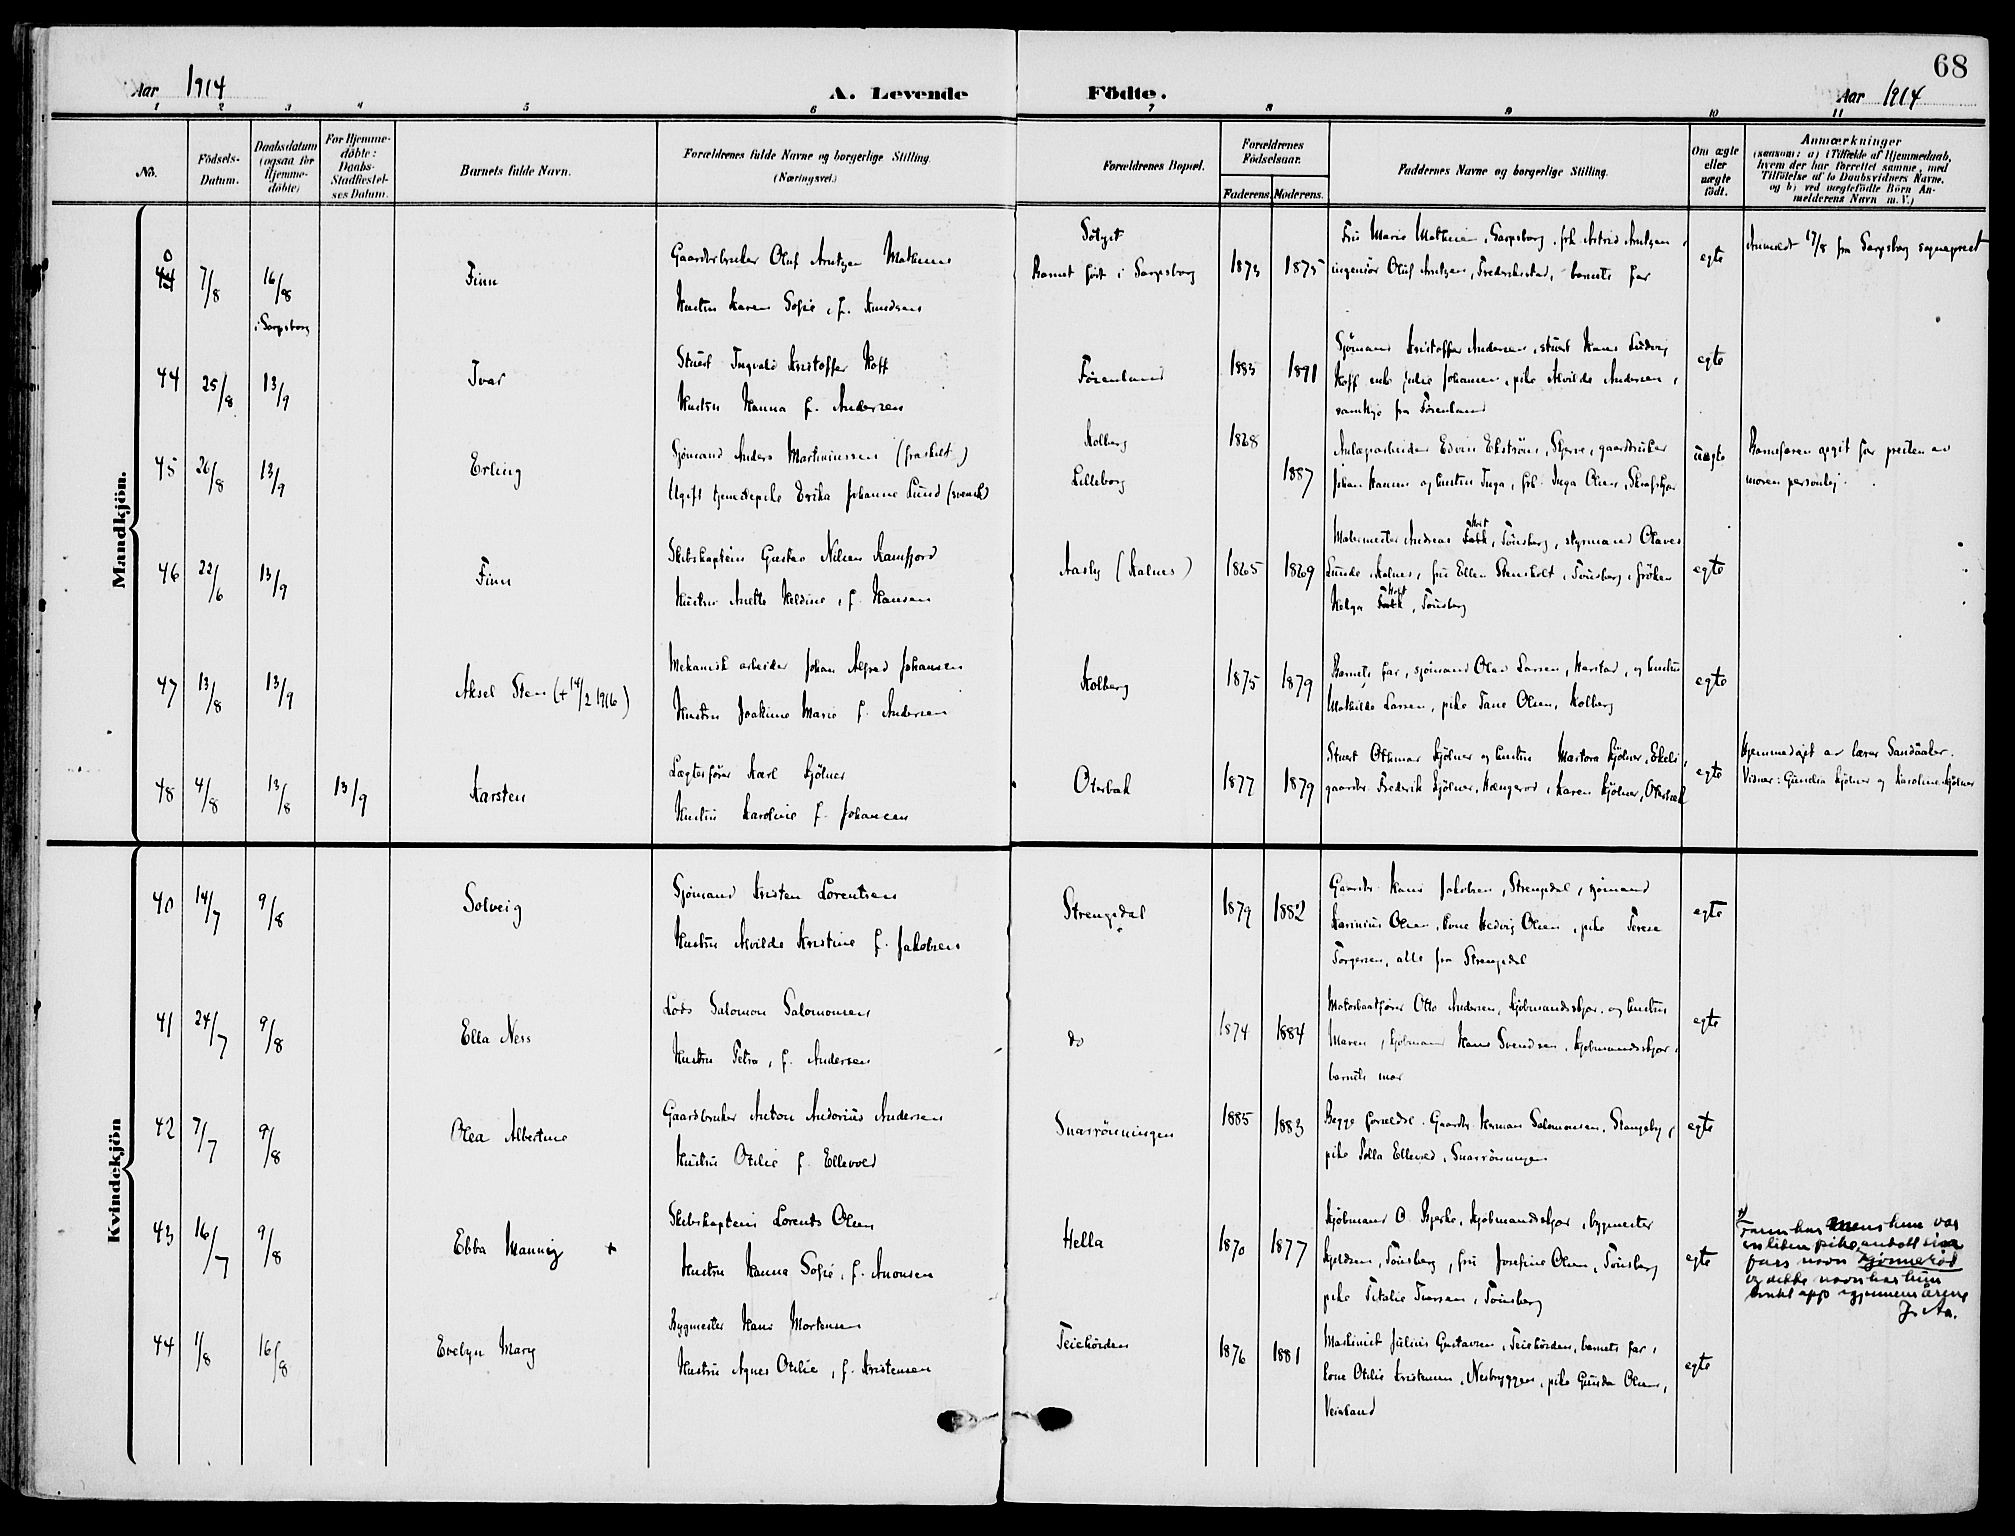 68
Aar 1914
A. Levende Födte.
Aar 1914
1 2 3 4 5 6 7 8 9 10 11
No.
Födsels-Datum.
Daabsdatum (ogsaa for Hjemmedöbte)
For Hjemmedöbte: Daabs-Stadfæstelses Datum.
Barnets fulde Navn.
Forældrenes fulde Navne og borgerlige Stilling. (Næringsvei.)
Forældrenes Bopæl.
Forældrenes Födselsaar.
Faderens. Moderens.
Faddernes Navne og borgerlige Stilling.
Om ægte eller uægte födt.
Anmærkninger (saasom: a) i Tilfælde af Hjemmedaab, hvem der har forrettet samme, med Tilföielse af to Daabsvidners Navne, og b) ved uægtefödte Börn Anmelderens Navn m. V.)
Mandkjön.
7/8 16/8 i Sarpsborg
Finn
Gaardbruker Oluf Arntzen
Hustru Karen Sofie, f. Knudsen
Barnet født i Sarpsborg
1873 1875
ingeniör Oluf Arntzen, Fredrikstad, barnets far
egte
Anmeldt 17/8 fra Sarpsborg sogneprest
44 25/8 13/9
Ivar
Stuert Ingvald Kristoffer Hoff
Hustru Hanna f. Andersen
Føienland
1883 1891
Sjömand Kristoffer Andersen, stuert Hans Ludvig
Hoff, enke Julie Johansen, pike Alvilde Andersen,
samtlige fra Føienland
egte
45 26/8 13/9
Erling
Sjömand Anders Martiniussen (fraskilt)
Ugift tjenestepike Erika Johanne Lund (svensk)
Kolberg
Lilleborg
1868
1887
Anlægsarbeider Edvin Ekström, gaardbruker
Johan Hansen og hustru Inga, frk. Inga Olsen
uegte
Barnefaren opgit for presten av
moren personlig.
46 22/6 13/9
Finn
Skibskaptein Gustav Nilsen Kamfjord
Hustru Anette Heldine, f. Hansen
Aasly (Kalnes)
1865 1869
Malermester Andreas Holst, Tönsberg, styrmand Olaves
Lunde, Kalnes, fru Ellen Stensholt, Tönsberg, fröken
Helga Holst, Tönsberg
egte
47 13/8 13/9
Aksel Sten (+ 14/2 1916)
Mekanisk arbeider Johan Alfred Johansen
Hustru Joakime Marie f. Andersen
Kolberg
1875 1879
Barnets far, sjömand Olav Larsen, Harstad, og hustru
Mathilde Larsen, pike Tane Olsen, Kolberg
egte
48 4/8 13/8 13/9
Karsten
Lægterfører Karl Kjölner
Hustru Karoline f. Johansen
Oterbæk
1877 1879
Stuert Othmar Kjölner og hustru Martora Kjölner, Ekeli,
gaardbr. Fredrik Kjölner, Hængerød, Karen Kjölner, Oterbæk
egte
Hjemmedøpt av lærer Sandaaker.
Vidner: Gundra Kjölner og Karoline Kjölner
Kvindekjön
40 14/7 9/8
Solveig
Sjömand Kristen Lorentsen
Hustru Alvilde Kristine f. Jakobsen
Strengsdal
1879 1882
Gaardbr. Hans Jakobsen, Strengsdal, sjömand
Karinius Olsen, kone Hedvig Olsen, pike Terese
Torgersen, alle fra Strengsdal
egte
41 24/7 9/8
Ella Ness
Lods Salomon Salomonsen
Hustru Petra, f. Andersen
do
1874 1884
Motorbaatfører Otto Andersen, Kjöbmandsskjær, og hustru
Maren, kjöbmand Hans Svendsen, Kjöbmandsskjær,
barnets mor
egte
42 7/7 9/8
Olea Albertine
Gaardbruker Anton Andorius Andersen
Hustru Otilie f. Ellevold
Snarrönningen
1885 1883
Begge foreldre. Gaardbr. Herman Salomonsen, Stangeby,
pike Solla Ellevold, Snarrönningen
egte
43 16/7 9/8
Ebba Mannig +
Skibskaptein Lorents Olsen
Hustru Hanna Sofie, f. Anonsen
Hella
1870 1877
Kjöbmand O. Bjerke, Kjöbmandsskjær, bygmester
Kjeldsen, Tönsberg, fru Josefine Olsen, Tönsberg
pike Titalie Iversen, Tönsberg
egte
+) Farm. har mens hun var
en liten pike antatt sin
fars navn Gjönnerød
og dette navn har hun
brukt opp igjennem årene
J. Aa.
44 1/8 16/8
Evelyn Mary
Bygmester Hans Mortensen
Hustru Agnes Otilie, f. Kristensen
Teiehörden
1876 1881
Maskinist Julius Gustavsen, Teiehörden, barnets far,
kone Otilie Kristensen, Nesbryggen, pike Gunda Olsen,
Veialand
egte